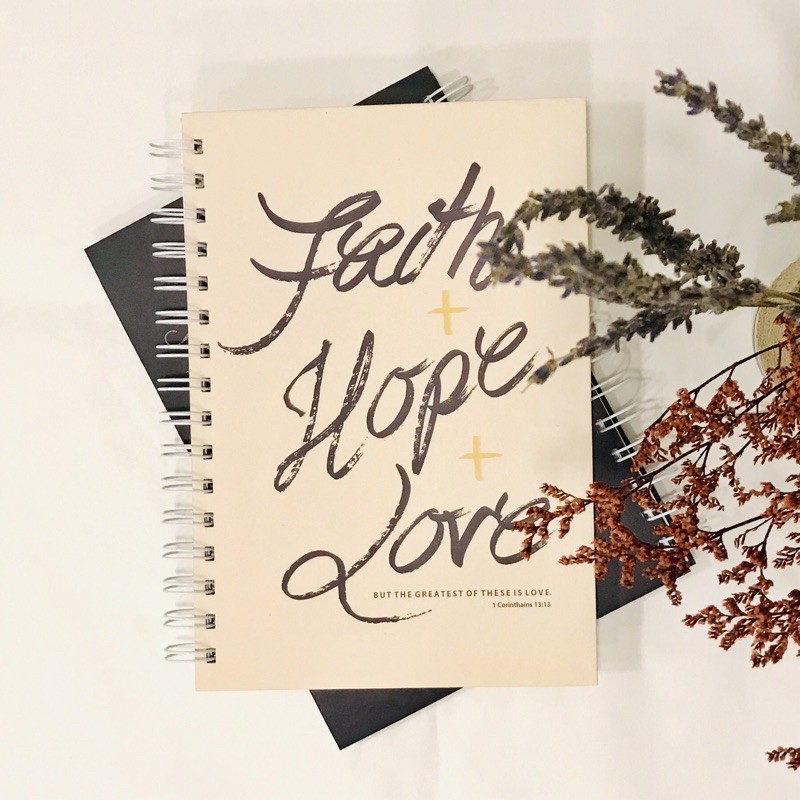 Faith
+
Hope
+
Love
BUT THE GREATEST OF THESE IS LOVE.
1 Corinthains 13:13